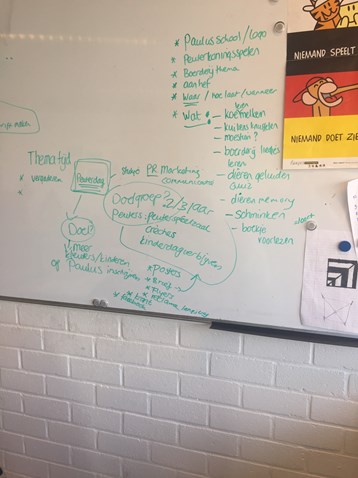 * Paulusschool/logo
* Peuterkoningsspelen
* Boerderijthema
* aanhef
* Waar / hoe laat / wanneer
* Wat * - koe melken
- kuikens knutselen
- moestuin?
- boerderij liedjes
leren
- dieren geluiden
quiz
- dieren memory
- schminken
- boekje
voorlezen
Thema tijd
*
*
Peuterdag
PR Marketing
communicatie
Doelgroep 2/3 jaar
Peuters: peuterspeelzaal
crèches
kinderdagverblijven
Doel
meer
kleuters/kinderen
op Paulus
* Posters
* Brief
* Flyers
*
* Facebook
NIEMAND SPEELT
NIEMAND DOET ZIE